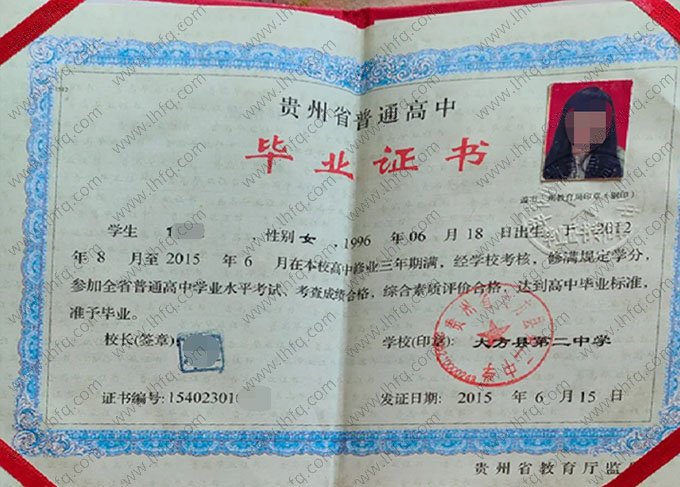 贵州省普通高中
毕业证书
盖市、州教育局印章(钢印)
学生 性别 女 , 1996 年 06 月 18 日出生, 于 2012
年 8 月至 2015 年 6 月在本校高中修业三年期满, 经学校考核, 修满规定学分,
参加全省普通高中学业水平考试、考查成绩合格, 综合素质评价合格, 达到高中毕业标准,
准予毕业。
校长(签章)
学校(印章): 大方县第二中学
证书编号: 15402301
发证日期: 2015 年 6 月 15 日
贵州省教育厅监
www.lhfq.com